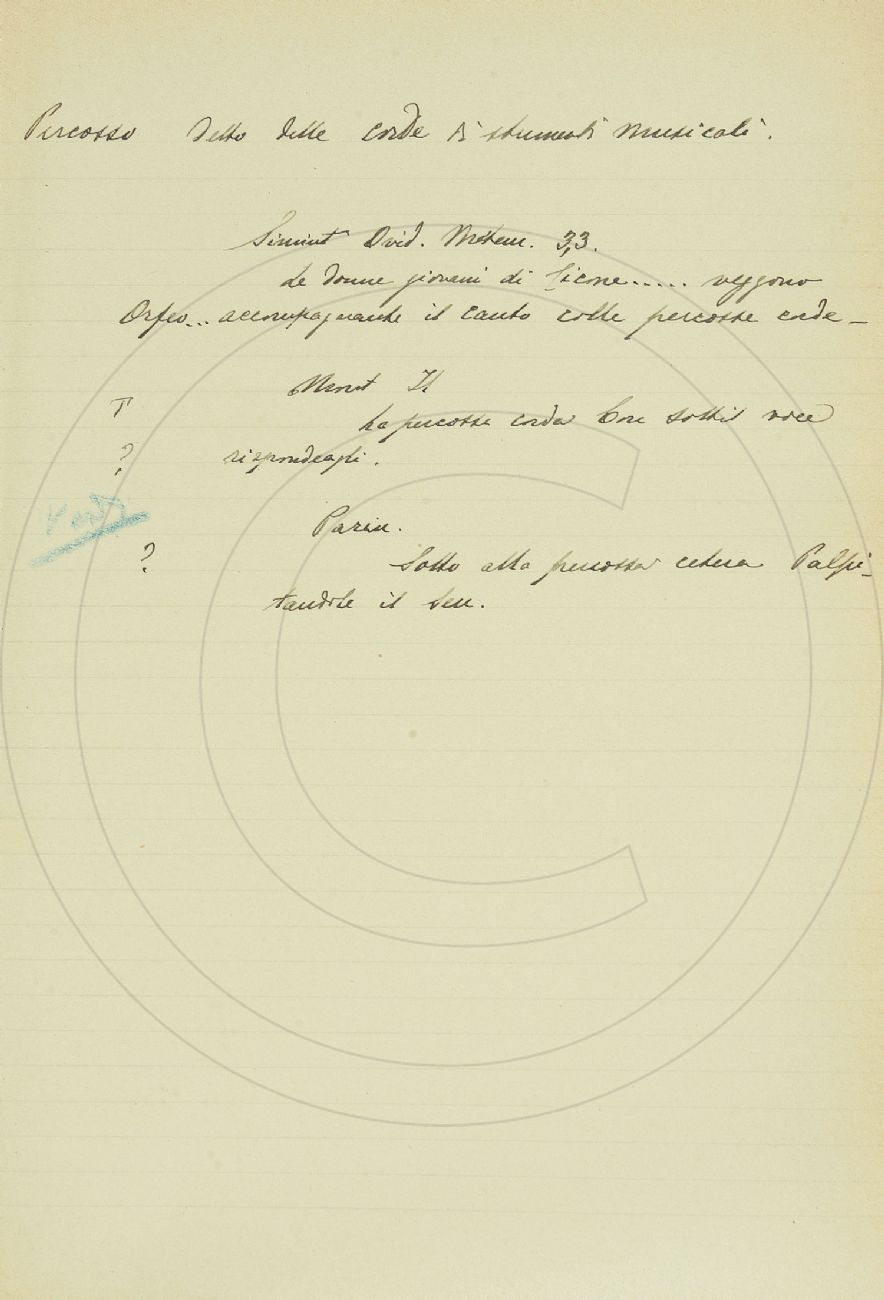 Percosso detto delle corde di strumenti musicali.
Simint Ovid. Metam. 3,3.
Le donne giovani di Cicone..... veggono
Orfeo... accompagnante il canto colle percosse corde_
Mont Il
T
La percossa corda Con sottil voce
? rispondeagli.
Parin.
? Sotto alla percossa cetera Palpi-
tandole il sen.